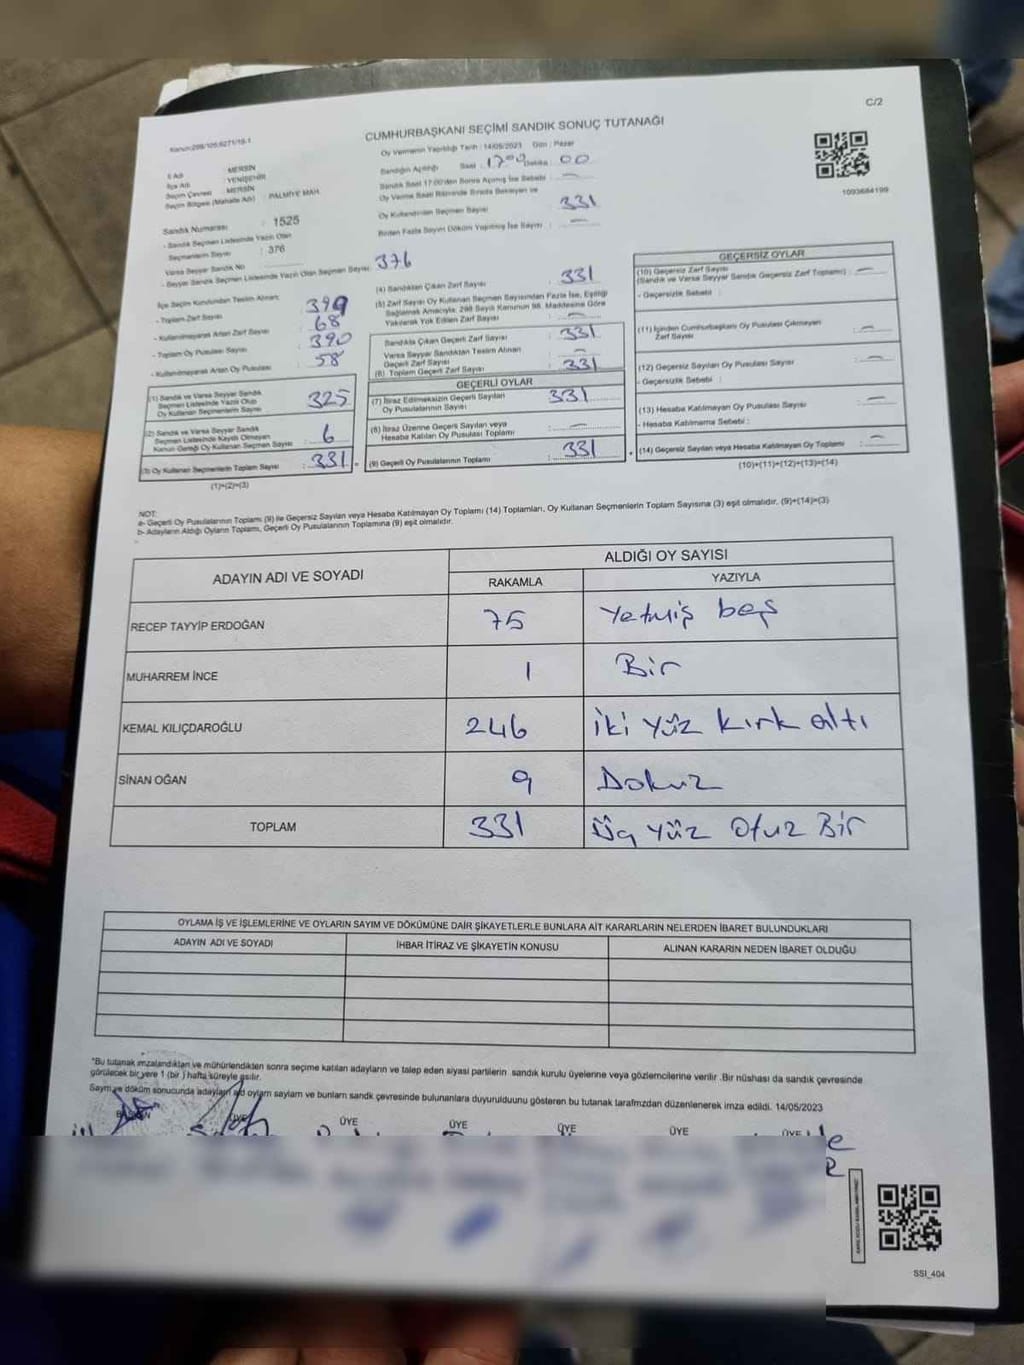 C/2
Kanun:298/105;6271/19-1
CUMHURBAŞKANI SEÇİMİ SANDIK SONUÇ TUTANAĞI
Oy Vermenin Yapıldığı Tarih : 14/05/2023 Gün : Pazar
İl Adı : MERSİN
İlçe Adı : YENİŞEHİR
Seçim Çevresi : MERSİN
Seçim Bölgesi (Mahalle Adı) : PALMİYE MAH.
Sandık Numarası : 1525
- Sandık Seçmen Listesinde Yazılı Olan
Seçmenlerin Sayısı : 376
Varsa Seyyar Sandık No
- Seyyar Sandık Seçmen Listesinde Yazılı Olan Seçmen Sayısı : 376
İlçe Seçim Kurulundan Teslim Alınan;
- Toplam Zarf Sayısı : 399
- Kullanılmayarak Artan Zarf Sayısı : 68
- Toplam Oy Pusulası Sayısı : 390
- Kullanılmayarak Artan Oy Pusulası : 58
(1) Sandık ve Varsa Seyyar Sandık
Seçmen Listesinde Yazılı Olup
Oy Kullanan Seçmenlerin Sayısı : 325
(2) Sandık ve Varsa Seyyar Sandık
Seçmen Listesinde Kayıtlı Olmayan
Kanun Gereği Oy Kullanan Seçmen Sayısı : 6
(3) Oy Kullanan Seçmenlerin Toplam Sayısı : 331 =
(1)+(2)=(3)
Sandığın Açıldığı Saat : 17:00 Dakika : 00
Sandık Saat 17:00'den Sonra Açılmış İse Sebebi : —
Oy Verme Saati Bitiminde Sırada Bekleyen ve
Oy Kullandırılan Seçmen Sayısı : 331
Birden Fazla Sayım Döküm Yapılmış İse Sayısı : —
(4) Sandıktan Çıkan Zarf Sayısı : 331
(5) Zarf Sayısı Oy Kullanan Seçmen Sayısından Fazla İse, Eşitliği
Sağlamak Amacıyla; 298 Sayılı Kanunun 98. Maddesine Göre
Yakılarak Yok Edilen Zarf Sayısı : —
Sandıkta Çıkan Geçerli Zarf Sayısı : 331
Varsa Seyyar Sandıktan Teslim Alınan
Geçerli Zarf Sayısı : —
(6) Toplam Geçerli Zarf Sayısı : 331
GEÇERLİ OYLAR
(7) İtiraz Edilmeksizin Geçerli Sayılan
Oy Pusulalarının Sayısı : 331
(8) İtiraz Üzerine Geçerli Sayılan veya
Hesaba Katılan Oy Pusulası Toplamı : —
(9) Geçerli Oy Pusulalarının Toplamı : 331 +
1093684199
GEÇERSİZ OYLAR
(10) Geçersiz Zarf Sayısı
(Sandık ve Varsa Seyyar Sandık Geçersiz Zarf Toplamı) : —
- Geçersizlik Sebebi :
(11) İçinden Cumhurbaşkanı Oy Pusulası Çıkmayan
Zarf Sayısı : —
(12) Geçersiz Sayılan Oy Pusulası Sayısı : —
- Geçersizlik Sebebi :
(13) Hesaba Katılmayan Oy Pusulası Sayısı : —
- Hesaba Katılmama Sebebi :
(14) Geçersiz Sayılan veya Hesaba Katılmayan Oy Toplamı : —
(10)+(11)+(12)+(13)=(14)
NOT:
a- Geçerli Oy Pusulalarının Toplamı (9) ile Geçersiz Sayılan veya Hesaba Katılmayan Oy Toplamı (14) Toplamları, Oy Kullanan Seçmenlerin Toplam Sayısına (3) eşit olmalıdır. (9)+(14)=(3)
b- Adayların Aldığı Oyların Toplamı, Geçerli Oy Pusulalarının Toplamına (9) eşit olmalıdır.
ADAYIN ADI VE SOYADI ALDIĞI OY SAYISI
RAKAMLA YAZIYLA
RECEP TAYYİP ERDOĞAN 75 Yetmiş beş
MUHARREM İNCE 1 Bir
KEMAL KILIÇDAROĞLU 246 iki yüz kırk altı
SİNAN OĞAN 9 Dokuz
TOPLAM 331 Üç yüz Otuz Bir
OYLAMA İŞ VE İŞLEMLERİNE VE OYLARIN SAYIM VE DÖKÜMÜNE DAİR ŞİKAYETLERLE BUNLARA AİT KARARLARIN NELERDEN İBARET BULUNDUKLARI
ADAYIN ADI VE SOYADI İHBAR İTİRAZ VE ŞİKAYETİN KONUSU ALINAN KARARIN NEDEN İBARET OLDUĞU
*Bu tutanak imzalandıktan ve mühürlendikten sonra seçime katılan adayların ve talep eden siyasi partilerin sandık kurulu üyelerine veya gözlemcilerine verilir .Bir nüshası da sandık çevresinde
görülecek bir yere 1 (bir ) hafta süreyle asılır.
Sayım ve döküm sonucunda adayların
oyların sayılam ve bunların sandk çevresinde bulunanlara duyurulduunu gösteren bu tutanak tarafmzdan düzenlenerek imza edildi. 14/05/2023
BAŞKAN ÜYE ÜYE ÜYE ÜYE ÜYE ÜYE
SSI_404